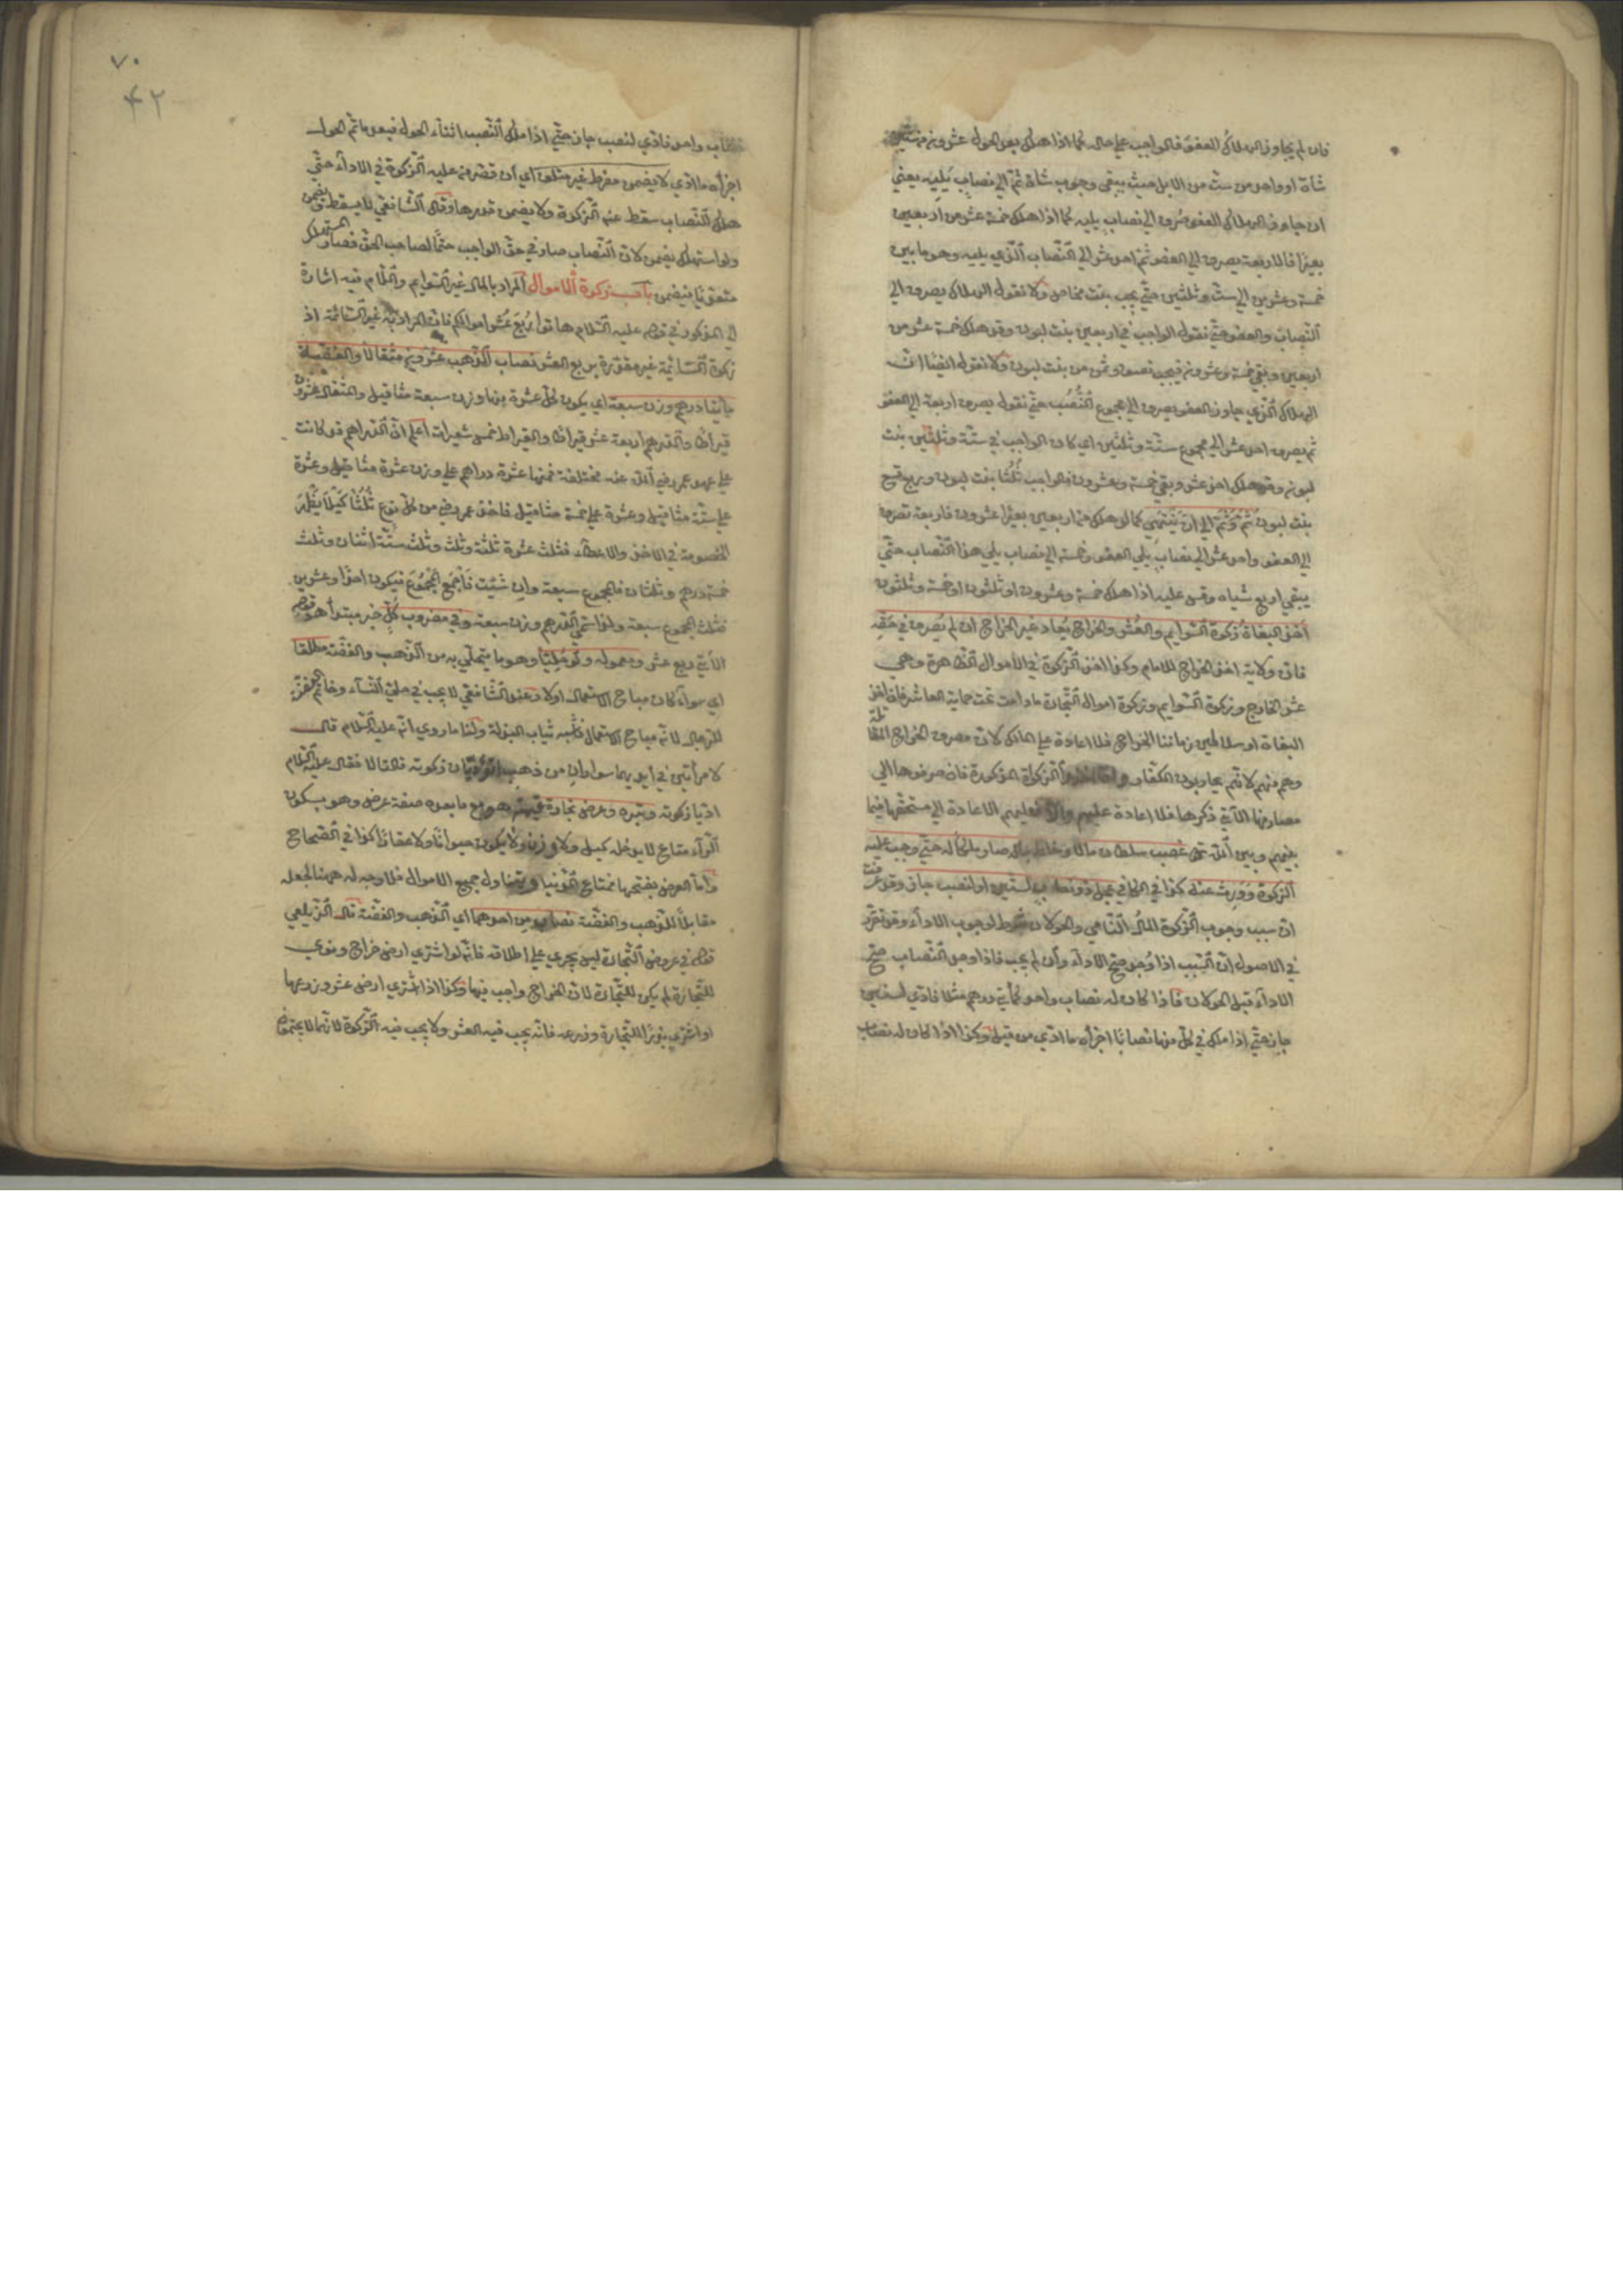 فان لم يجاوز الهلاك العفو فالواجب علي حاله كما اذا هلك بعد الحول عشرون من ستين
شاة او واحد من ست من الابل حيث يبقي وجوب شاة ثم الي نصاب يليه يعني
ان جاوز الهلاك العفو صرف الي نصاب يليه كما اذا هلك خمسة عشر من اربعين
بعيرا فالاربعة يصرف الي العفو ثم احد عشر الي النصاب الذي يليه وهو ما بين
خمسة وعشرين الي ست وثلثين حتي يجب بنت مخاض ولا نقول الهلاك يصرف الي
النصاب والعفو حتي نقول الواجب في اربعين بنت لبون وقد هلك خمسة عشر من
اربعين وبقي خمسة وعشرون فيجب نصف وثمن من بنت لبون ولا نقول ايضا ان
الهلاك الذي جاوز العفو يصرف الي مجموع النصب حتي نقول يصرف اربعة الي العفو
ثم يصرف احد عشر الي مجموع ستة وثلثين اي كان الواجب في ستة وثلثين بنت
لبون وقد هلك احد عشر وبقي خمسة وعشرون فالواجب ثلثا بنت لبون وربع تسع
بنت لبون ثم وثم الي ان ينتهي كما لو هلك من اربعين بعيرا عشرون فاربعة تصرف
الي العفو واحد عشر الي نصاب يلي العفو وخمسة الي نصاب يلي هذا النصاب حتي
يبقي اربع شياه وقس عليه اذا هلك خمسة وعشرون او ثلثون او خمسة وثلثون
اخذ البغاة زكوة السوايم والعشر والخراج يعاد غير الخراج ان لم يصرف في حقه
فان ولاية اخذ الخراج للامام وكذا اخذ الزكوة في الاموال الظاهرة وهي
عشر الخارج وزكوة السوايم وزكوة اموال التجارة ما دامت تحت حماية العاشر فان اخذ
البغاة او سلاطين زماننا الخراج فلا اعادة علي المالك لان مصرف الخراج المقاتلة
وهم منهم لانهم يحاربون الكفار وان اخذوا الزكواة المذكورة فان صرفوها الي
مصارفها الآتي ذكرها فلا اعادة عليهم والا فعليهم الاعادة الي مستحقها فيما
بينهم وبين الله تعالي غصب سلطان مالا وخلط بماله صار ملكا له حتي وجب عليه
الزكوة وورث عنه كذا في الكافي عجل ذو نصاب لسنين او لنصب جاز وقد عرفت
ان سبب وجوب الزكوة المال النامي والحولان شرط لوجوب الاداء وقد تقرر
في الاصول ان السبب اذا وجد صح الاداء وان لم يجب فاذا وجد النصاب صح
الاداء قبل الحولان فاذا كان له نصاب واحد كمأتي درهم مثلا فادي لسنين
جاز حتي اذا ملك في كل منها نصابا اجزأه ما ادي من قبل وكذا اذا كان له نصاب
نصاب واحد فادي لنصب جاز حتي اذا ملك النصب اثناء الحول فبعد ما تم الحول
اجزأه ما ادي لا يضمن مفرط غير متلف اي ان قصر من عليه الزكوة في الاداء حتي
هلك النصاب سقط عنه الزكوة ولا يضمن قدرها وقال الشافعي لا يسقط بل يضمن
ولو استهلك يضمن لان النصاب صار في حق الواجب حقا لصاحب الحق فصار المستهلك
متعديا فيضمن باب زكوة الاموال المراد بالمال غير السوايم واللام فيه اشارة
الي المذكور في قوله عليه السلام هاتوا ربع عشر اموالكم فان المراد به غير السائمة اذ
زكوة السائمة غير مقدرة بربع العشر نصاب الذهب عشرون مثقالا والفضة
مايتا درهم وزن سبعة اي يكون كل عشرة منها وزن سبعة مثاقيل والمثقال عشرون
قيراطا والدرهم اربعة عشر قيراطا والقيراط خمس شعيرات اعلم ان الدراهم قد كانت
علي عهد عمر رضي الله عنه مختلفة فمنها عشرة دراهم علي وزن عشرة مثاقيل وعشرة
علي ستة مثاقيل وعشرة علي خمسة مثاقيل فاخذ عمر رضي من كل نوع ثلثا كيلا يظهر
الخصومة في الاخذ والاعطاء فثلث عشرة ثلثة وثلث وثلث ستة اثنان وثلث
خمسة درهم وثلثان فالمجموع سبعة وان شئت فاجمع المجموع فيكون احدا وعشرين
فثلث المجموع سبعة ولذا سمي الدرهم وزن سبعة وفي مضروب كل خبر مبتدأ هو قوله
الآتي ربع عشر ومعموله ولو حليا وهو ما يتحلي به من الذهب والفضة مطلقا
اي سواء كان مباح الاستعمال اولا وعند الشافعي لا يجب في حلي النساء وخاتم الفضة
للرجال لانه مباح الاستعمال فاشبه ثياب البذلة ولنا ما روي انه عليه السلام قال
لامرأتين في ايديهما سواران من ذهب اتؤديان زكوته قالتا لا فقال عليه السلام
اديا زكوته وتبره وعرض تجارة قيمته هو مع ما بعده صفة عرض وهو بسكون
الراء متاع لا يدخله كيل ولا وزن ولا يكون حيوانا ولا عقارا كذا في الصحاح
واما العرض بفتحها فمتاع الدنيا ويتناول جميع الاموال فلا وجه له ههنا لجعله
مقابلا للذهب والفضة نصاب من احدهما اي الذهب والفضة قال الزيلعي
قوله في عروض التجارة ليس يجري علي اطلاقه فانه لو اشتري ارض خراج ونوي
للتجارة لم يكن للتجارة لان الخراج واجب فيها وكذا اذا اشتري ارض عشر وزرعها
او اشتري بذرا للتجارة وزرعه فانه يجب فيه العشر ولا يجب فيه الزكوة لانهما لا يجتمعان
٧٠
۴۲